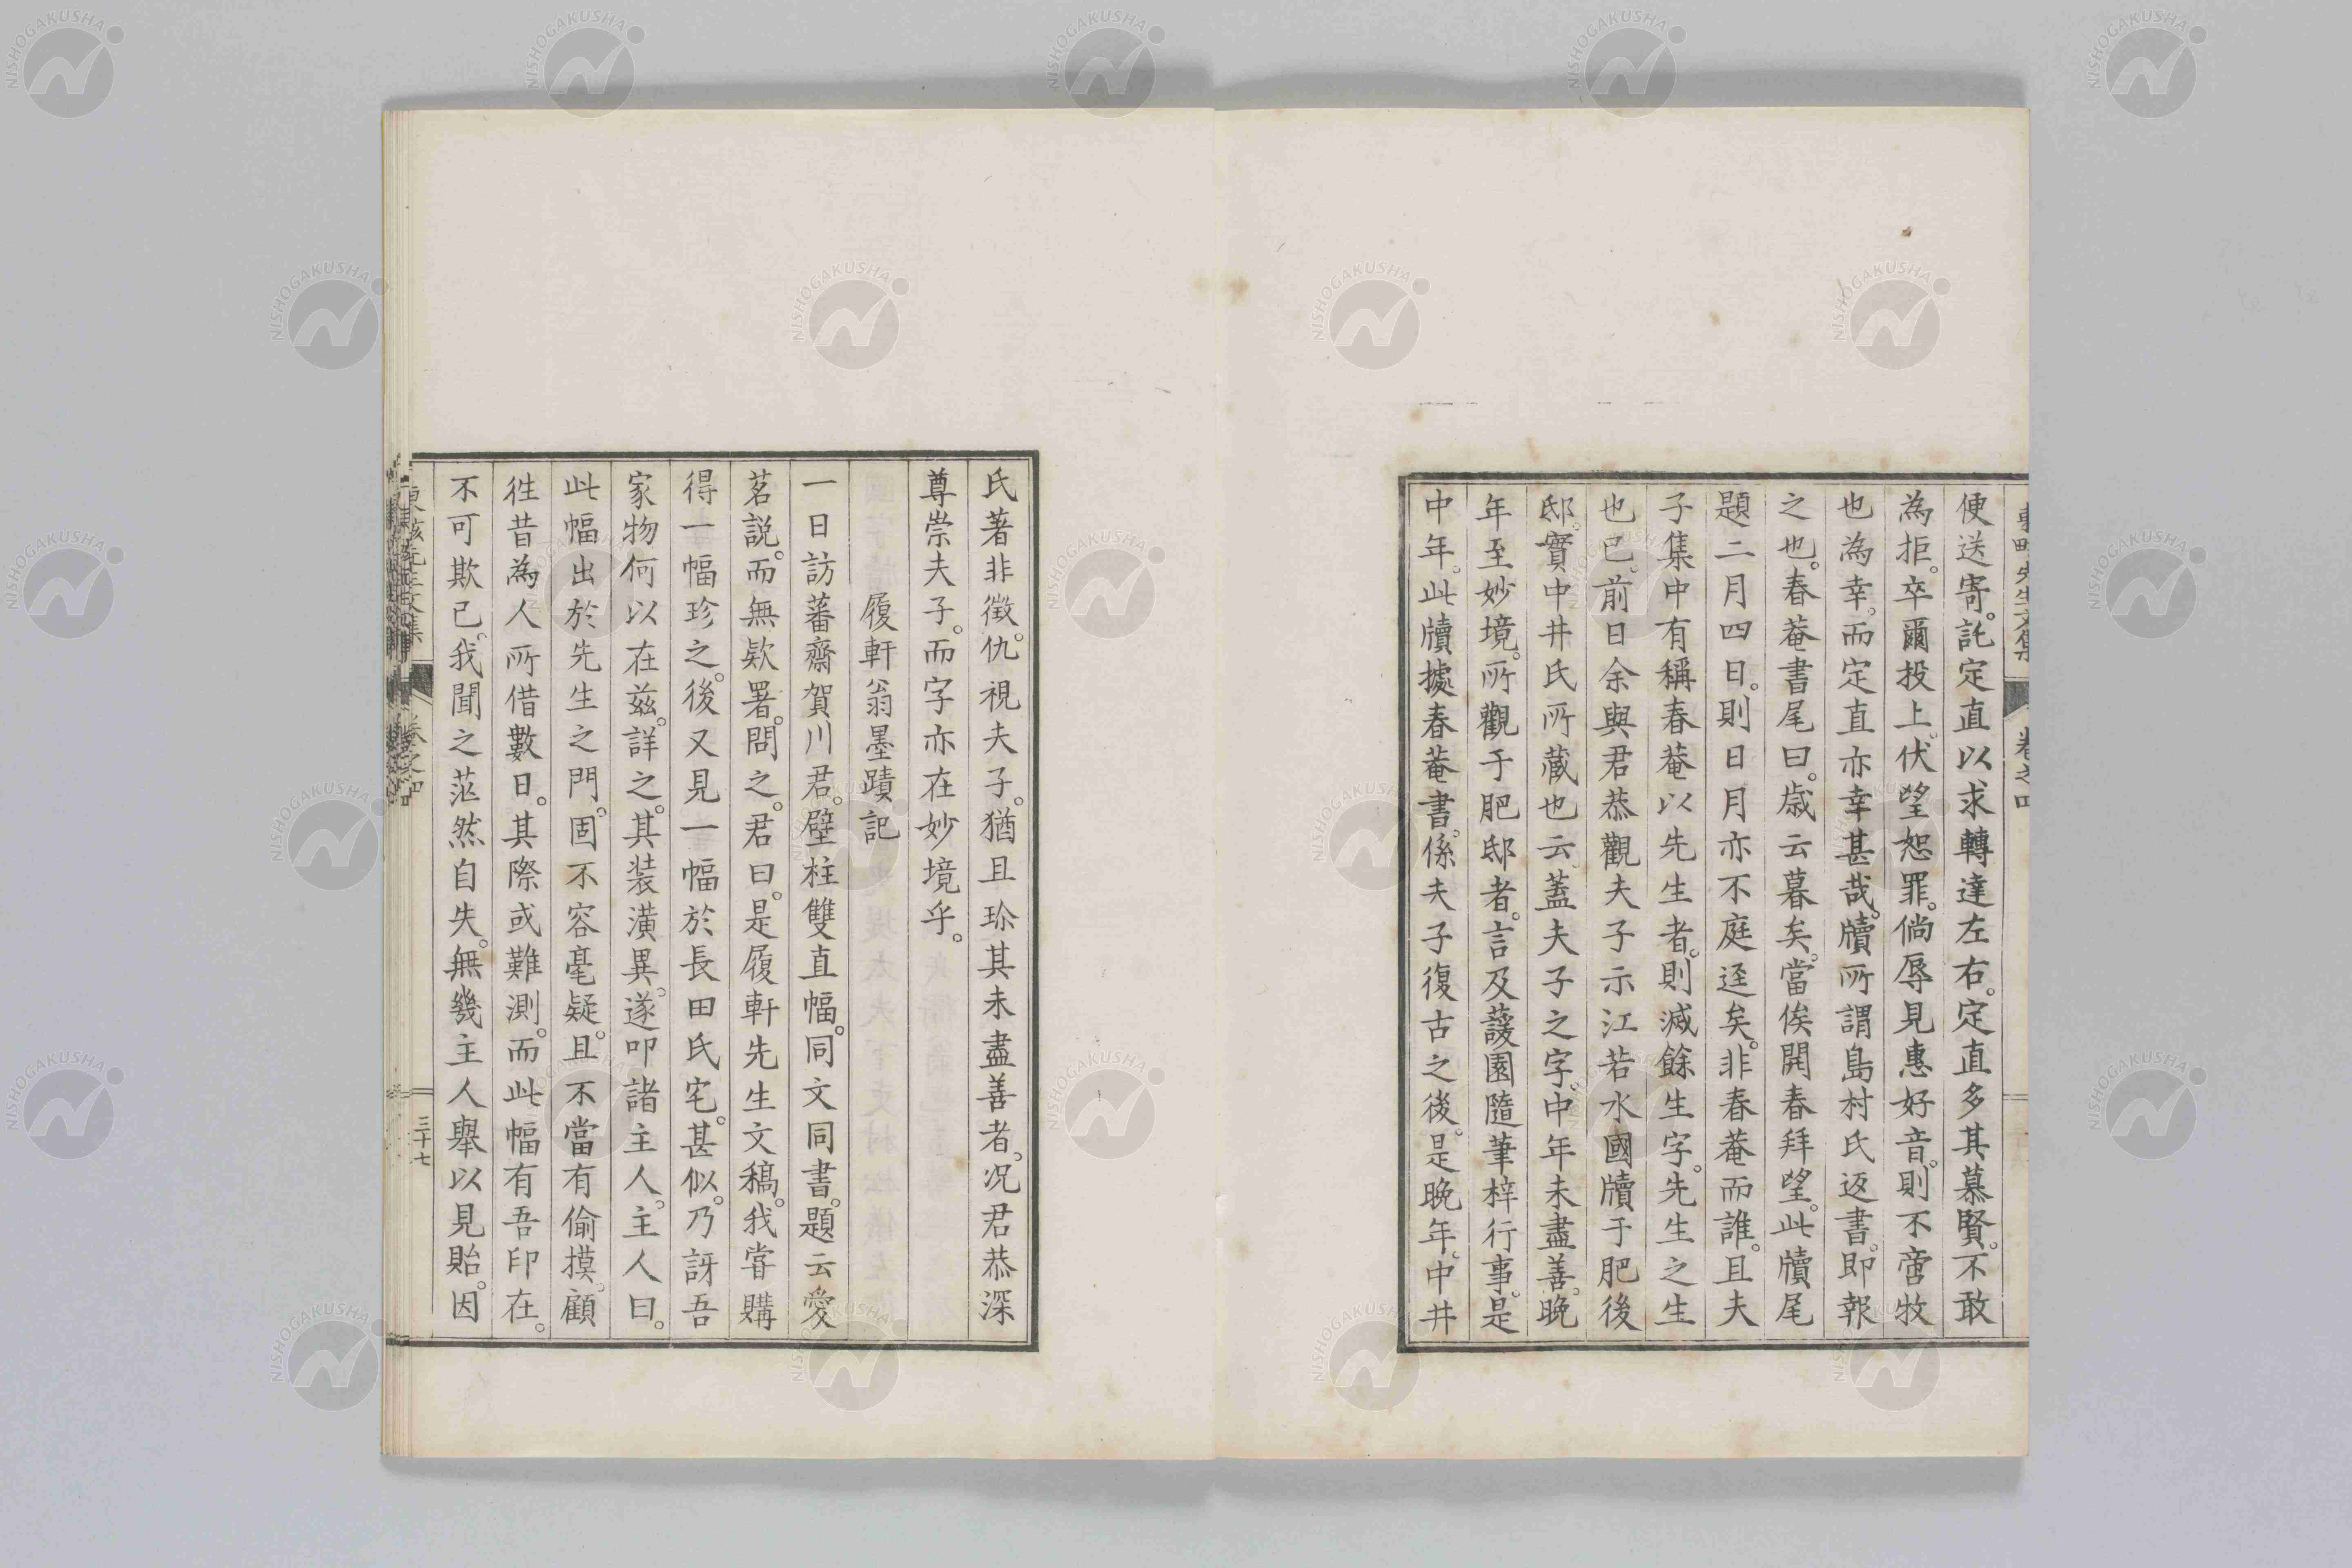 便送寄。託定直以求轉達左右。定直多其慕賢。不敢
為拒。卒爾投上。伏望恕罪。倘辱見惠好音。則不啻牧
也為幸。而定直亦幸甚哉。牘所謂島村氏返書。即報
之也。春菴書尾曰。歲云暮矣。當俟開春拜望。此牘尾
題二月四日。則日月亦不庭逕矣。非春菴而誰。且夫
子集中有稱春菴以先生者。則減餘生字。先生之生
也已。前日余與君恭觀夫子示江若水國牘于肥後
邸。實中井氏所藏也云。蓋夫子之字。中年未盡善。晚
年至妙境。所觀于肥邸者。言及蘐園隨筆梓行事。是
中年。此牘據春菴書。係夫子復古之後。是晚年。中井
氏著非徵。仇視夫子。猶且珍其未盡善者。況君恭深
尊崇夫子。而字亦在妙境乎。
履軒翁墨蹟記
一日訪蕃齋賀川君。壁柱雙直幅。同文同書。題云愛
茗説。而無欵署。問之。君曰。是履軒先生文稿。我甞購
得一幅珍之。後又見一幅於長田氏宅。甚似。乃訝吾
家物何以在茲。詳之。其装潢異。遂叩諸主人。主人曰。
此幅出於先生之門。固不容毫疑。且不當有偷摸。顧
徃昔為人所借數日。其際或難測。而此幅有吾印在。
不可欺已。我聞之茫然自失。無幾主人舉以見貽。因
卷之四
三十七
NISHOGAKUSHA